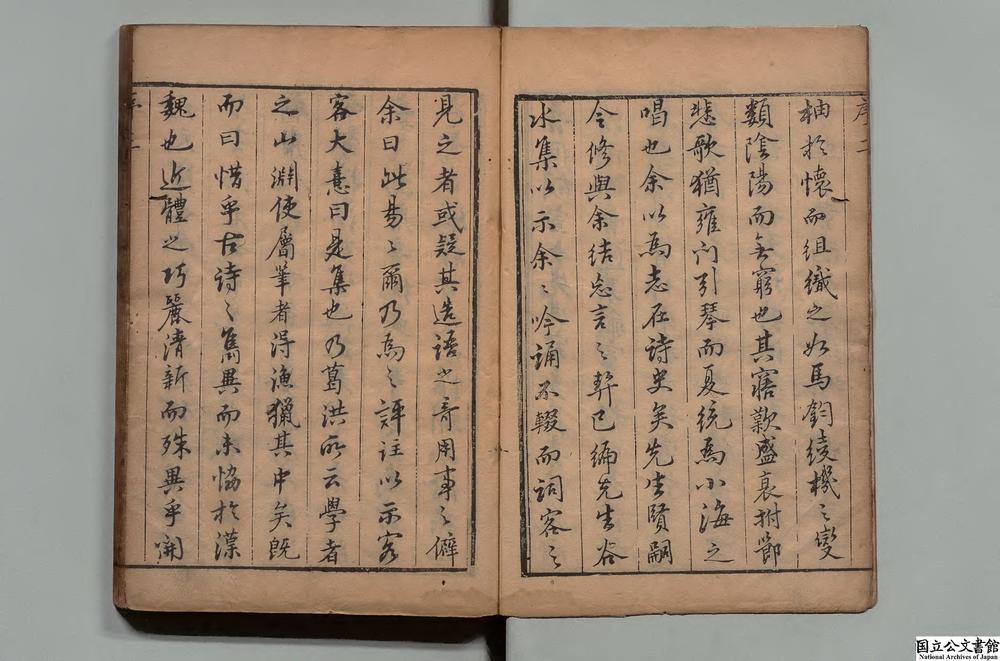 序 二
柚於懷而組織之如馬鈞綾機之變
類陰陽而無窮也其寤歎盛衰拊節
悲歌猶雍門引琴而夏統為小海之
唱也余以為志在詩史矣先生賢嗣
令修與余結忘言之契已編先生谷
水集以示余〻吟誦不輟而詞客之
見之者或疑其造語之奇用事之僻
余曰此易〻爾乃為之評註以示客
客大憙曰是集也乃葛洪所云學者
之山淵使屬筆者得漁獵其中矣既
而曰惜乎古詩之雋異而未恊於漢
魏也近體之巧麗清新而殊異乎開
国立公文書館
National Archives of Japan